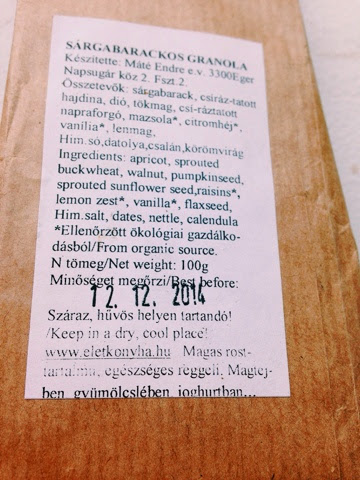 SÁRGABARACKOS GRANOLA
Készítette: Máté Endre e.v. 3300Eger
Napsugár köz 2. Fszt 2.
Összetevők: sárgabarack, csíráz-tatott
hajdina, dió, tökmag, csí-ráztatott
napraforgó, mazsola*, citromhéj*,
vanília*, lenmag,
Him.só,datolya,csalán,körömvirág
Ingredients: apricot, sprouted
buckwheat, walnut, pumpkinseed,
sprouted sunflower seed,raisins*,
lemon zest*, vanilla*, flaxseed,
Him.salt, dates, nettle, calendula
*Ellenőrzött ökológiai gazdálko-
dásból/From organic source.
N tömeg/Net weight: 100g
Minőséget megőrzi/Best before:
12. 12. 2014
Száraz, hűvös helyen tartandó!
/Keep in a dry, cool place!
www.eletkonyha.hu Magas rost-
tartalmú, egészséges reggeli, Magtej-
ben, gyümölcslében, joghurtban...